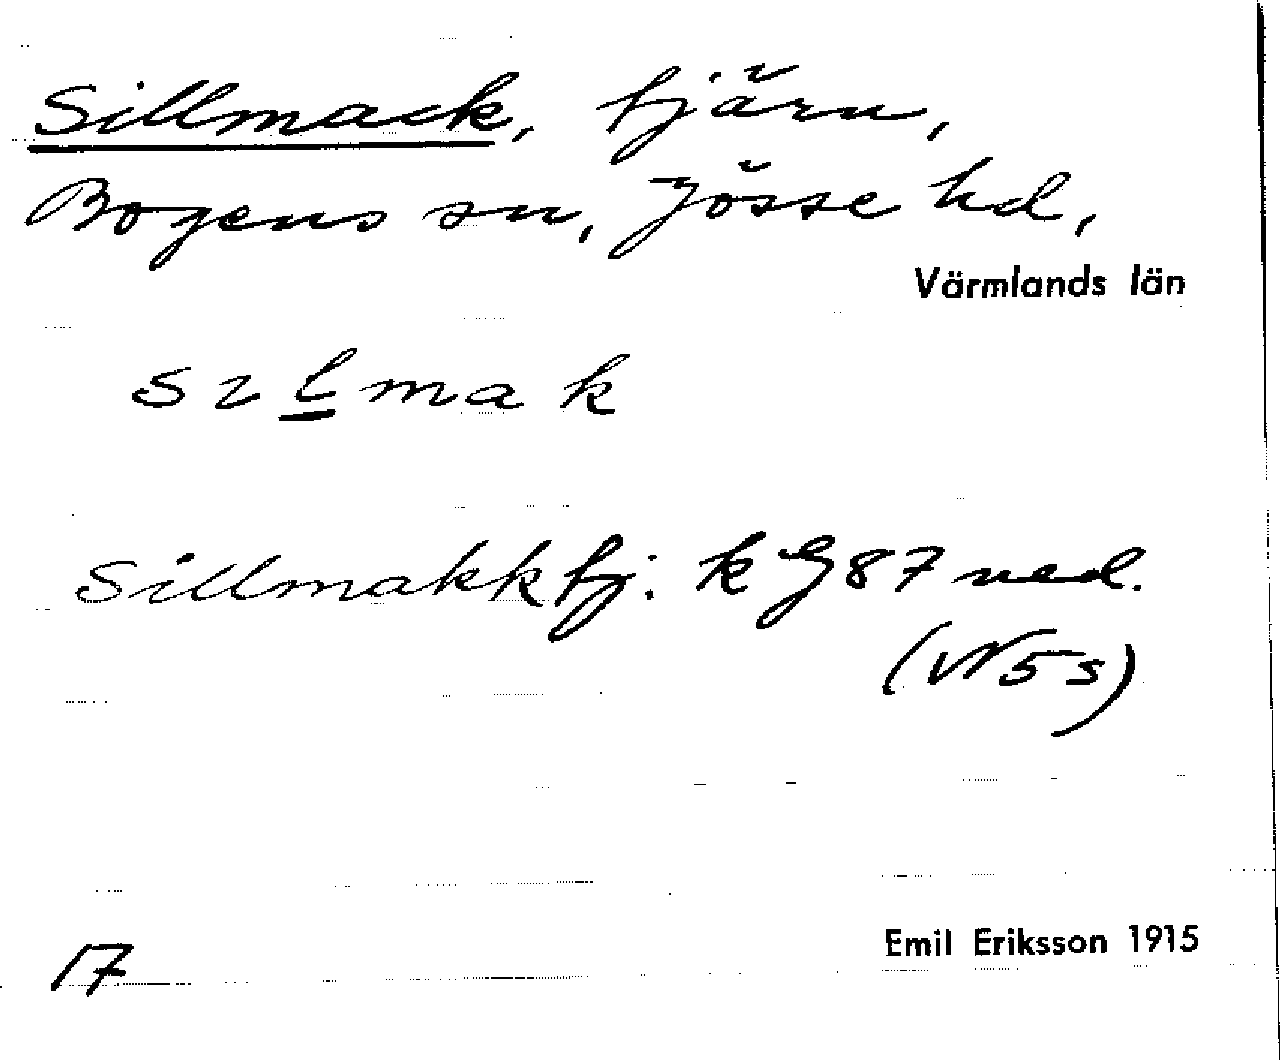 Sillmack, tjärn,
Bogens sn, Jösse hd,
Värmlands län
sılmak
Sillmakktj. k G 87 ned.
(W 5 s)
Emil Eriksson 1915
17